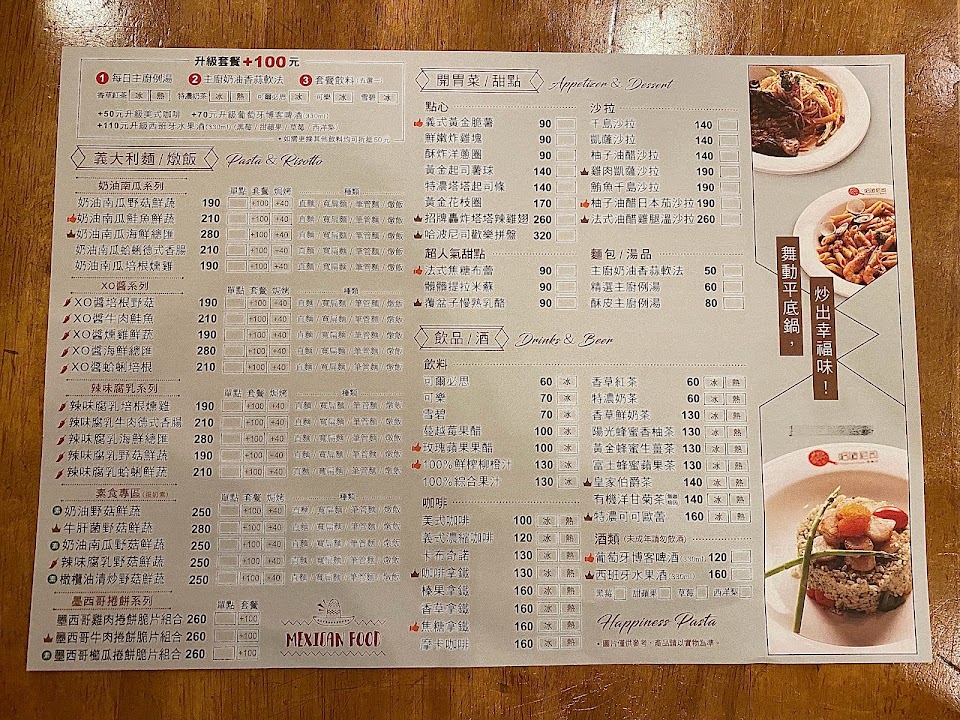 升級套餐+100元
1 每日主廚例湯 2 主廚奶油香蒜軟法 3 套餐飲料(五選一)
香草紅茶 冰 熱 特濃奶茶 冰 熱 可爾必思 冰 可樂 冰 雪碧 冰
+50元升級美式咖啡 +70元升級葡萄牙博客啤酒(330ml)
+110元升級西班牙水果酒(330ml)(黑莓/甜蘋果/草莓/西洋梨)
*如需更換其他飲料均可折抵50元
義大利麵/燉飯 Pasta & Risotto
奶油南瓜系列 單點 套餐 焗烤 種類
奶油南瓜野菇鮮蔬 190 +100 +40 直麵/寬扁麵/筆管麵/燉飯
奶油南瓜鮭魚鮮蔬 210 +100 +40 直麵/寬扁麵/筆管麵/燉飯
奶油南瓜海鮮總匯 280 +100 +40 直麵/寬扁麵/筆管麵/燉飯
奶油南瓜蛤蜊德式香腸 210 +100 +40 直麵/寬扁麵/筆管麵/燉飯
奶油南瓜培根燻雞 190 +100 +40 直麵/寬扁麵/筆管麵/燉飯
XO醬系列 單點 套餐 焗烤 種類
XO醬培根野菇 190 +100 +40 直麵/寬扁麵/筆管麵/燉飯
XO醬牛肉鮭魚 210 +100 +40 直麵/寬扁麵/筆管麵/燉飯
XO醬燻雞鮮蔬 190 +100 +40 直麵/寬扁麵/筆管麵/燉飯
XO醬海鮮總匯 280 +100 +40 直麵/寬扁麵/筆管麵/燉飯
XO醬蛤蜊培根 210 +100 +40 直麵/寬扁麵/筆管麵/燉飯
辣味腐乳系列 單點 套餐 焗烤 種類
辣味腐乳培根燻雞 190 +100 +40 直麵/寬扁麵/筆管麵/燉飯
辣味腐乳牛肉德式香腸 210 +100 +40 直麵/寬扁麵/筆管麵/燉飯
辣味腐乳海鮮總匯 280 +100 +40 直麵/寬扁麵/筆管麵/燉飯
辣味腐乳野菇鮮蔬 190 +100 +40 直麵/寬扁麵/筆管麵/燉飯
辣味腐乳蛤蜊鮮蔬 210 +100 +40 直麵/寬扁麵/筆管麵/燉飯
素食專區(蛋奶素) 單點 套餐 焗烤 種類
奶油野菇鮮蔬 250 +100 +40 直麵/寬扁麵/筆管麵/燉飯
牛肝菌野菇鮮蔬 280 +100 +40 直麵/寬扁麵/筆管麵/燉飯
奶油南瓜野菇鮮蔬 250 +100 +40 直麵/寬扁麵/筆管麵/燉飯
辣味腐乳野菇鮮蔬 250 +100 +40 直麵/寬扁麵/筆管麵/燉飯
橄欖油清炒野菇鮮蔬 250 +100 +40 直麵/寬扁麵/筆管麵/燉飯
墨西哥捲餅系列 單點 套餐
墨西哥雞肉捲餅脆片組合 260 +100
墨西哥牛肉捲餅脆片組合 260 +100
墨西哥櫛瓜捲餅脆片組合 260 +100
MEXICAN FOOD
開胃菜/甜點 Appetizer & Dessert
點心
義式黃金脆薯 90
鮮嫩炸雞塊 90
酥炸洋蔥圈 90
黃金起司薯球 140
特濃塔塔起司條 140
黃金花枝圈 140
招牌轟炸塔塔辣雞翅 260
哈波尼司歡樂拼盤 320
沙拉
千島沙拉 140
凱薩沙拉 140
柚子油醋沙拉 140
雞肉凱薩沙拉 190
鮪魚千島沙拉 190
柚子油醋日本茄沙拉 190
法式油醋雞腿溫沙拉 260
超人氣甜點
法式焦糖布蕾 90
髒髒提拉米蘇 90
覆盆子慢熟乳酪 90
麵包/湯品
主廚奶油香蒜軟法 50
精選主廚例湯 60
酥皮主廚例湯 80
飲品/酒 Drinks & Beer
飲料
可爾必思 60 冰
可樂 70 冰
雪碧 70 冰
蔓越莓果醋 100 冰
玫瑰蘋果果醋 130 冰
100%鮮榨柳橙汁 130 冰
100%綜合果汁 130 冰
香草紅茶 60 冰 熱
特濃奶茶 60 冰 熱
香草鮮奶茶 130 冰 熱
陽光蜂蜜香柚茶 130 冰 熱
黃金蜂蜜生薑茶 130 冰 熱
富士蜂蜜蘋果茶 130 冰 熱
皇家伯爵茶 140 冰 熱
有機洋甘菊茶 140 冰 熱
特濃可可歐蕾 160 冰 熱
咖啡
美式咖啡 100 冰 熱
義式濃縮咖啡 120 冰 熱
卡布奇諾 130 冰 熱
咖啡拿鐵 130 冰 熱
榛果拿鐵 160 冰 熱
香草拿鐵 160 冰 熱
焦糖拿鐵 160 冰 熱
摩卡咖啡 160 冰 熱
酒類(未成年請勿飲酒)
葡萄牙博客啤酒(330ml) 120
西班牙水果酒(330ml) 160
黑莓 甜蘋果 草莓 西洋梨
Happiness Pasta
*圖片僅供參考,產品請以實物為準。
舞動平底鍋,
炒出幸福味!